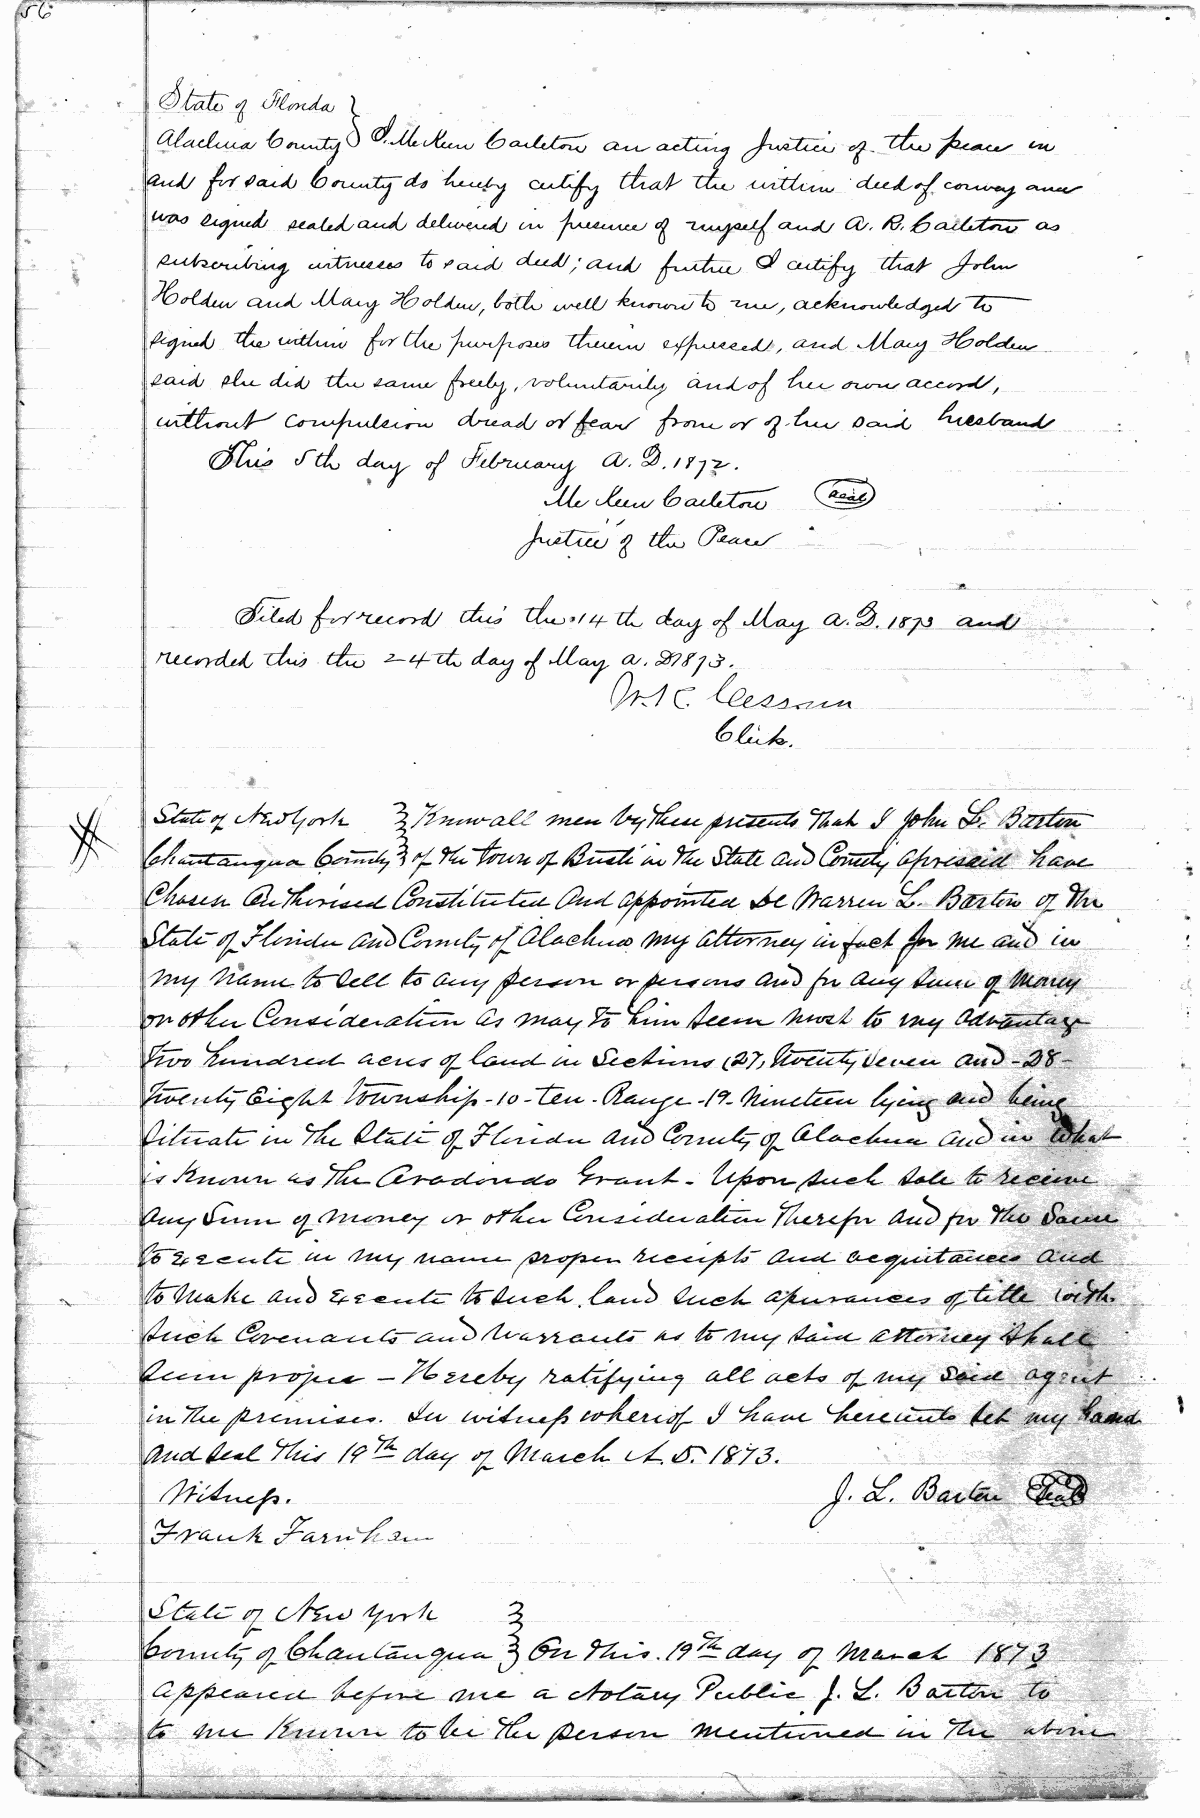 56
State of Florida }
Alachua County } I. McKeen Carleton an acting Justice of the peace in
and for said County do hereby certify that the within deed of convey ance
was signed sealed and delivered in presence of myself and A. R. Carleton as
subscribing witnesses to said deed; and further I certify that John
Holden and Mary Holden, both well known to me, acknowledged to
signed the within for the purposes therein expressed, and Mary Holden
said she did the same freely, voluntarily and of her own accord,
without compulsion dread or fear from or of her said husband
This 5th day of February A. D. 1872.
McKeen Carleton (seal)
Justice of the Peace
Filed for record this the 14th day of May A. D. 1873 and
recorded this the 24th day of May A. D 1873.
W. K. Cessna
Clerk.
State of New York } Know all men by these presents that I John L. Barton
Chautauqua County } of the town of Busti in the State and County aforesaid have
Chosen Authorised Constituted And appointed De Warren L. Barton of the
State of Florida and County of Alachua my attorney in fact for me and in
my name to sell to any person or persons and for any sum of money
or other Consideration as may to him seem most to my advantage
Two hundred acres of land in Sections (27, Twenty seven and - 28 -
Twenty Eight Township - 10 - ten - Range - 19 - Nineteen lying and being
Situate in the State of Florida and County of Alachua and in what
is Known as the Aradondo Grant - Upon such sale to receive
any Sum of money or other Consideration therefor and for the Same
to Execute in my name proper receipts and acquitances and
to Make and Execute to such land such apurances of title with
such Covenants and Warrants as to my said attorney shall
seem proper - Hereby ratifying all acts of my said agent
in the premises. In witness whereof I have hereunto set my hand
and seal this 19th day of March A. D. 1873.
Witness. J. L. Barton (Seal)
Frank Farnham
State of New York }
County of Chautauqua } On this. 19th day of March 1873
appeared before me a Notary Public J. L. Barton to
to me Known to be the person mentioned in the above